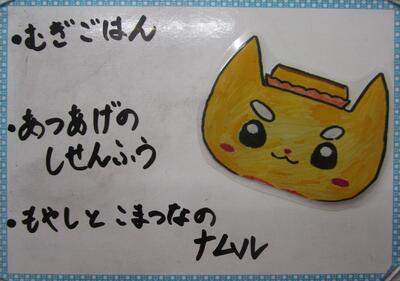 ・むぎごはん
・あつあげの
しせんふう
・もやしと こまつなの
ナムル